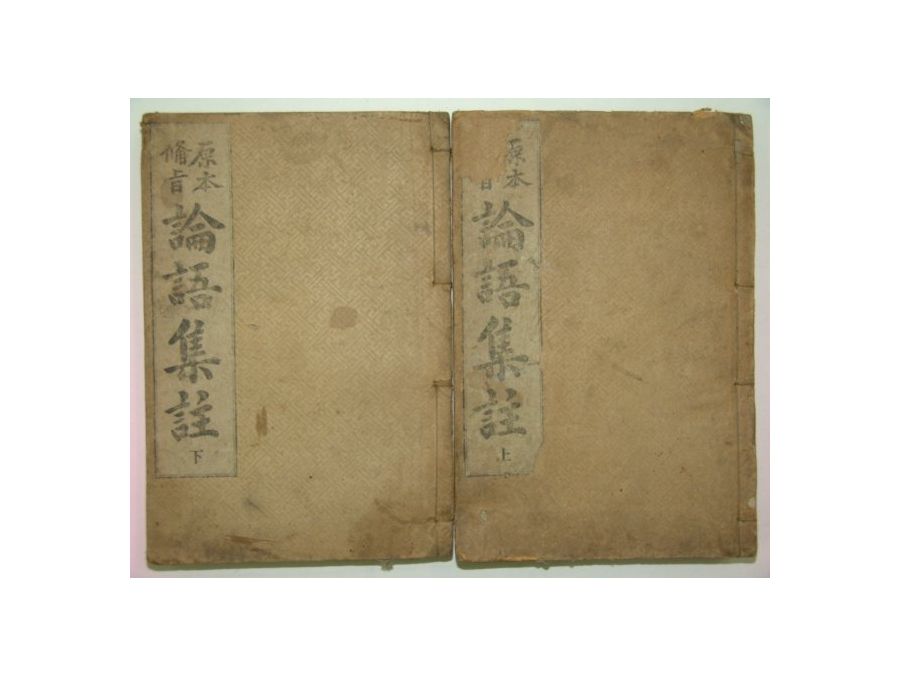 原本
旨
論語集註
上
原本
備旨
論語集註
下